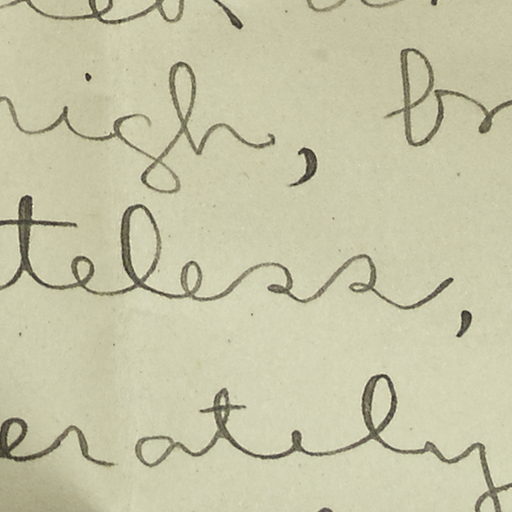 igh, br
teless,
erately